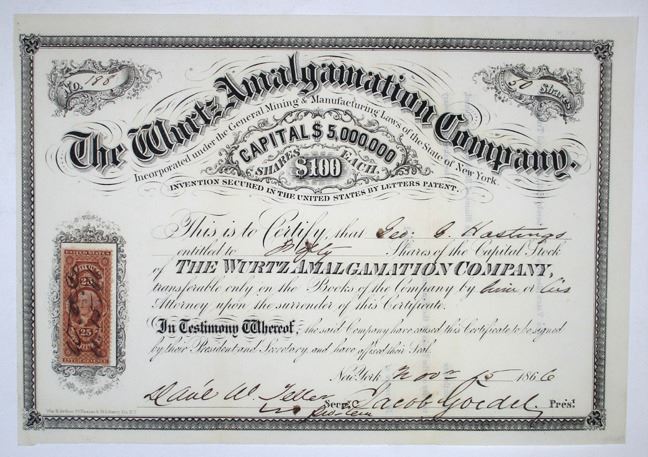 No. 188
50 Shares
The Wurtz Amalgamation Company.
Incorporated under the General Mining & Manufacturing Laws of the State of New York.
CAPITAL $5,000,000
SHARES $100 EACH
INVENTION SECURED IN THE UNITED STATES BY LETTERS PATENT.
This is to Certify, that Geo. C. Hastings
entitled to Fifty Shares of the Capital Stock
of THE WURTZ AMALGAMATION COMPANY,
transferable only on the Books of the Company by him or his
Attorney upon the surrender of this Certificate.
In Testimony Whereof, the said Company have caused this Certificate to be signed
by their President and Secretary, and have affixed their Seal.
New York Novr 15 1866
Danl W. Teller Secy. Jacob Goedel, Prest.
25 25